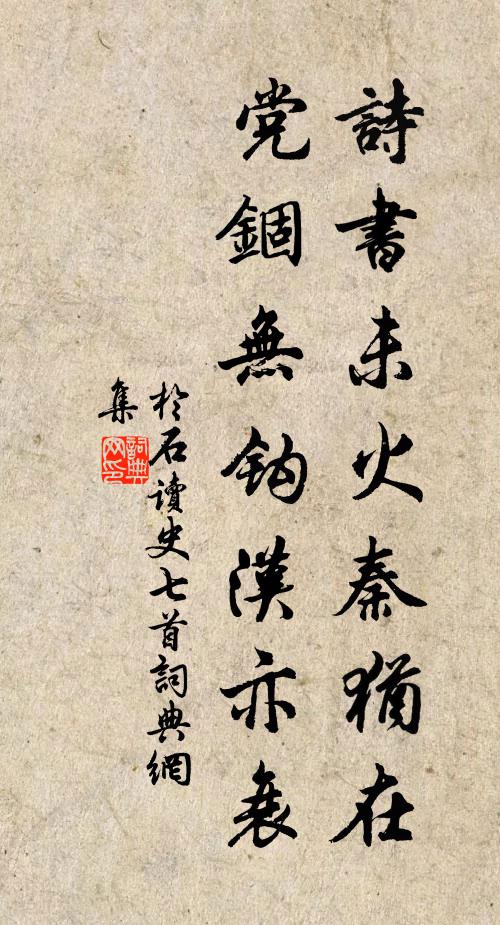 詩書未火秦猶在
党錮無鈎漢亦衰
於石讀史七首詞典網
集
詞典網印